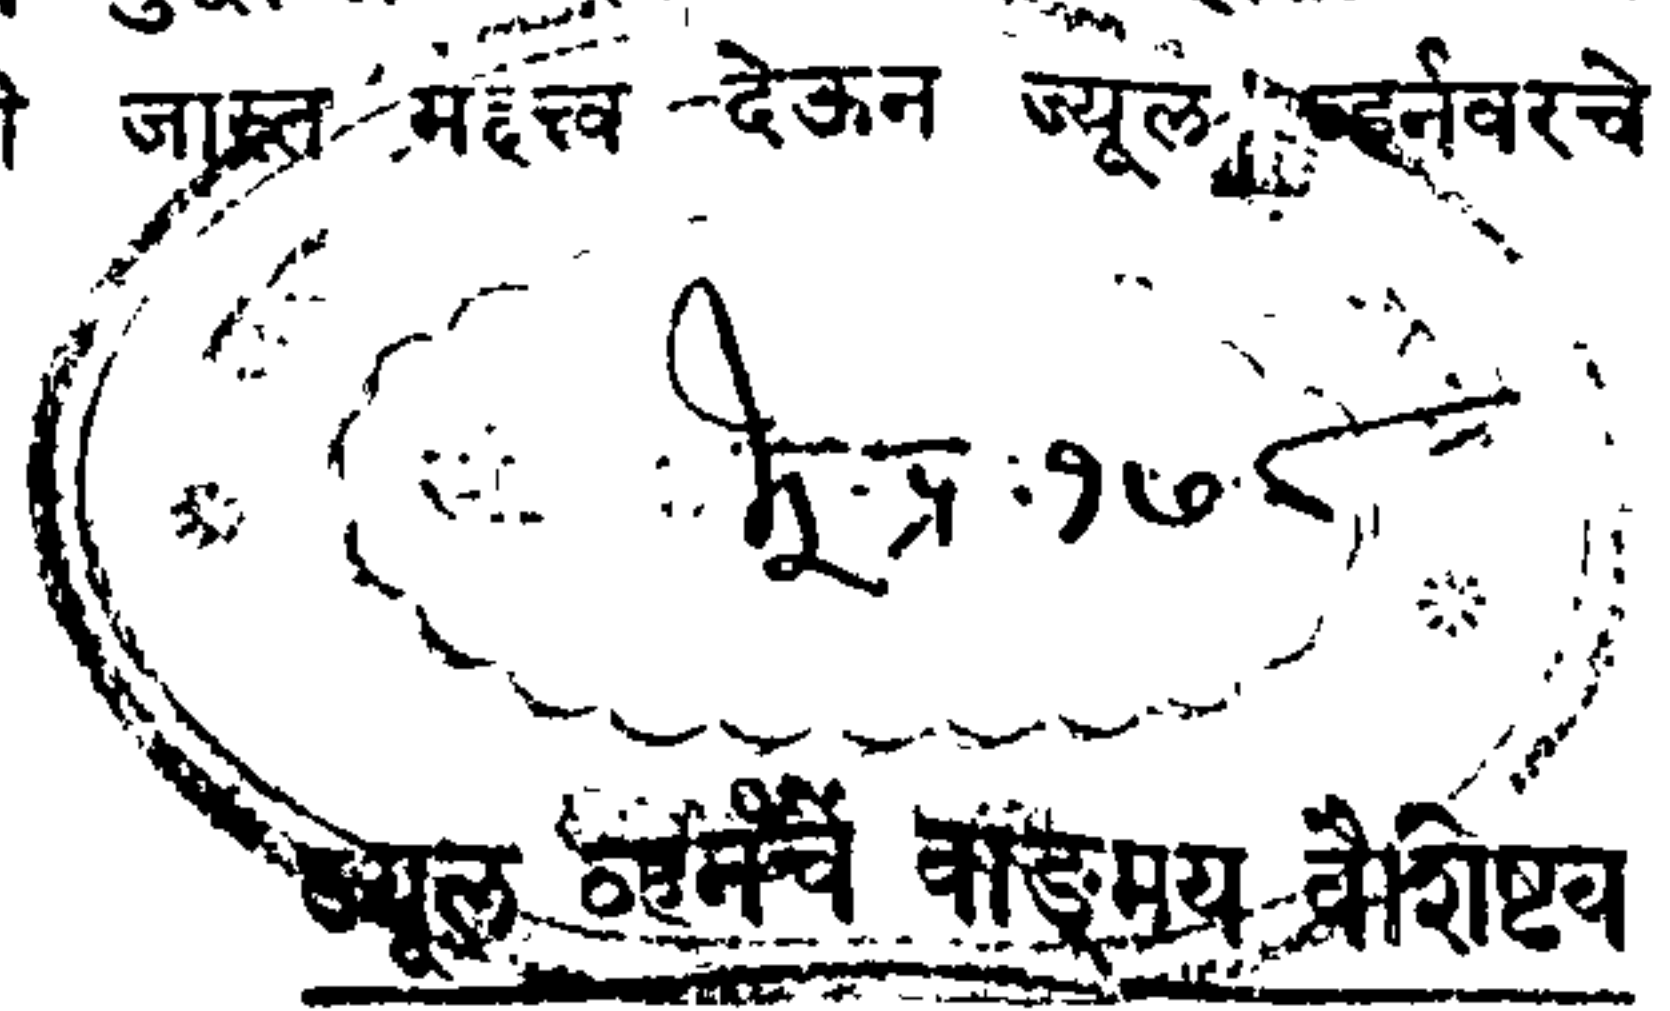 जास्त महत्त्व देऊन ज्यूल व्हर्नवरचे
१७
ज्यूल व्हर्नचे वाङ्मय वैशिष्ट्य